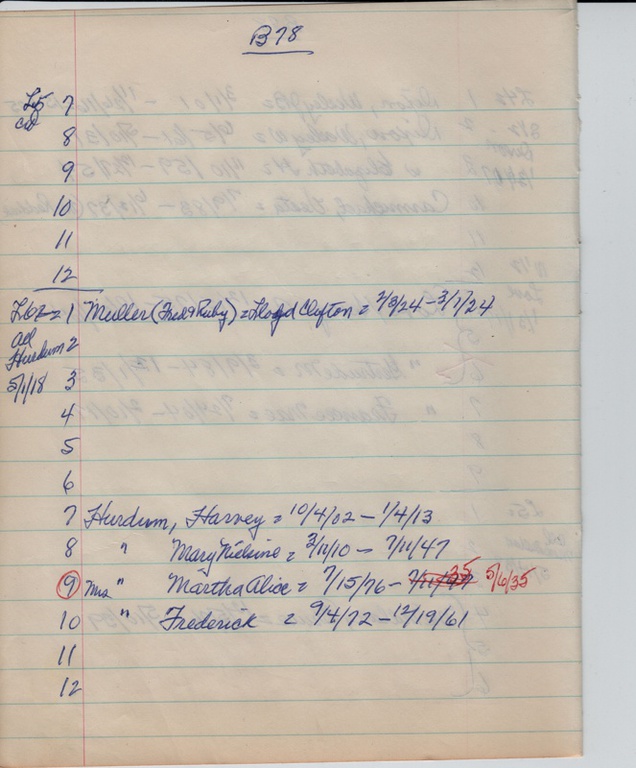 B78
Lot 5 7
8
9
10
11
12
Lot 2 = 1 Muller (Fred & Ruby) = Lloyd Clifton = 3/3/24 - 3/7/24
Ad
Hurdum 2
5/1/18 3
4
5
6
7 Hurdum, Harvey = 10/4/02 - 1/4/13
8 " Mary Nielsine = 3/11/10 - 7/11/47
9 Mrs " Martha Alice = 7/15/76 - 7/11/47 35 5/6/35
10 " Frederick = 9/4/72 - 12/19/61
11
12